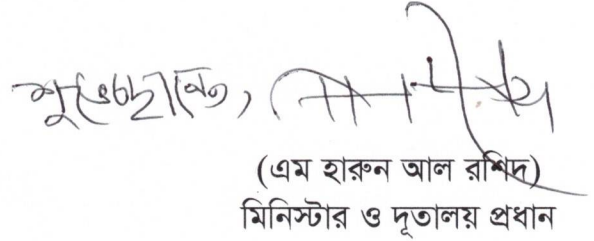 শুভেচ্ছান্তে,
(এম হারুন আল রশিদ)
মিনিস্টার ও দূতালয় প্রধান